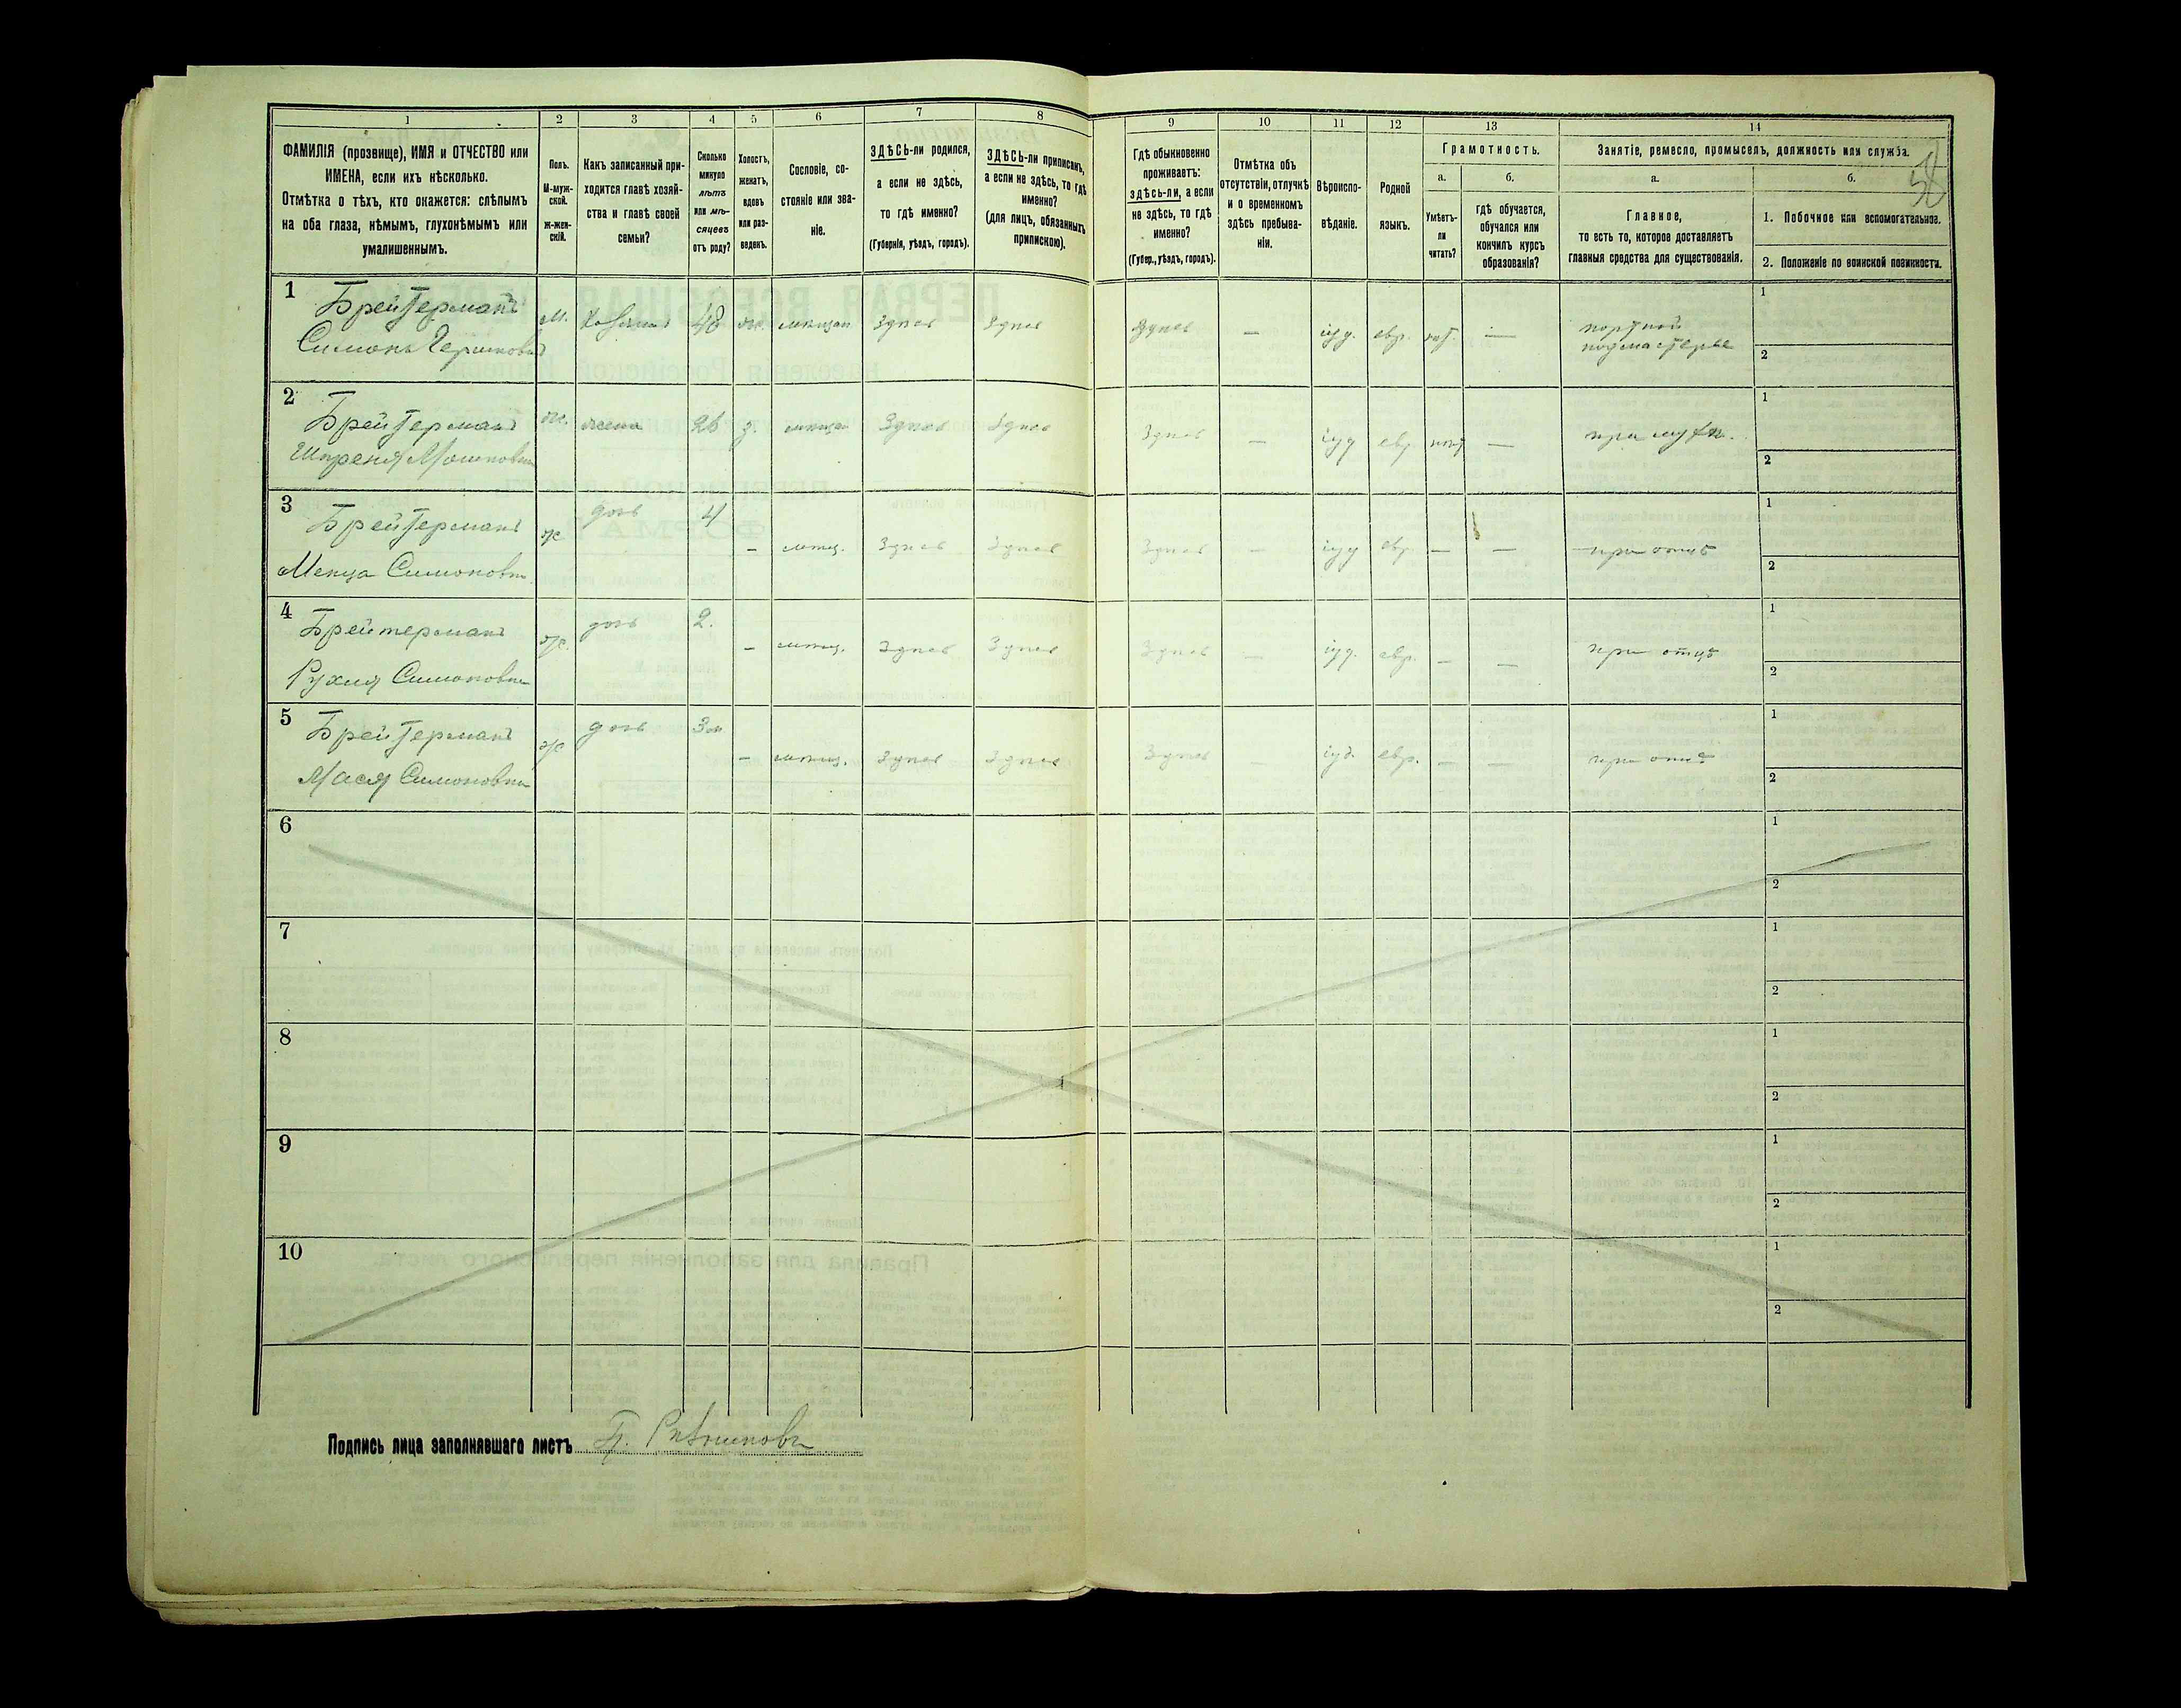 1 2 3 4 5 6 7 8 9 10 11 12 13 14
ФАМИЛІЯ (прозвище), ИМЯ и ОТЧЕСТВО или
ИМЕНА, если ихъ нѣсколько.
Отмѣтка о тѣхъ, кто окажется: слѣпымъ
на оба глаза, нѣмымъ, глухонѣмымъ или
умалишеннымъ.
Полъ.
М-муж-
ской.
ж-жен-
скій.
Какъ записанный при-
ходится главѣ хозяй-
ства и главѣ своей
семьи?
Сколько
минуло
лѣтъ
или мѣ-
сяцевъ
отъ роду?
Холостъ,
женатъ,
вдовъ
или раз-
веденъ.
Сословіе, со-
стояніе или зва-
ніе.
ЗДѢСЬ-ли родился,
а если не здѣсь,
то гдѣ именно?
(Губернія, уѣздъ, городъ).
ЗДѢСЬ-ли приписанъ,
а если не здѣсь, то гдѣ
именно?
(для лицъ, обязанныхъ
припискою).
Гдѣ обыкновенно
проживаетъ:
здѣсь-ли, а если
не здѣсь, то гдѣ
именно?
(Губер., уѣздъ, городъ).
Отмѣтка объ
отсутствіи, отлучкѣ
и о временномъ
здѣсь пребыва-
ніи.
Вѣроиспо-
вѣданіе.
Родной
языкъ.
Грамотность.
а.
Умѣетъ-
ли
читать?
б.
гдѣ обучается,
обучался или
кончилъ курсъ
образованія?
Занятіе, ремесло, промыселъ, должность или служба.
58
а.
Главное,
то есть то, которое доставляетъ
главныя средства для существованія.
б.
1. Побочное или вспомогательное.
2. Положеніе по воинской повинности.
1 Брейтерманъ
Симонъ
м. 48 ж. мѣщан здѣсь здѣсь здѣсь — іуд. евр. —
портной
подмастерье
1
2
2 Брейтерманъ
Шпреня Мошковна
ж. жена 26 з. мѣщан здѣсь здѣсь здѣсь — іуд евр —
при мужѣ.
1
2
3 Брейтерманъ
Менца Симоновна
ж дочь 4 — мѣщ. здѣсь здѣсь здѣсь — іуд евр. — — при отцѣ
1
2
4 Брейтерманъ
Рухля Симоновна
ж. дочь 2. — мѣщ. здѣсь здѣсь здѣсь — іуд. евр. — — при отцѣ
1
2
5 Брейтерманъ
Мася Симоновна
ж дочь 3 м — мѣщ. здѣсь здѣсь здѣсь — іуд. евр. — — при отцѣ
1
2
6
1
2
7
1
2
8
1
2
9
1
2
10
1
2
Подпись лица заполнявшаго листъ